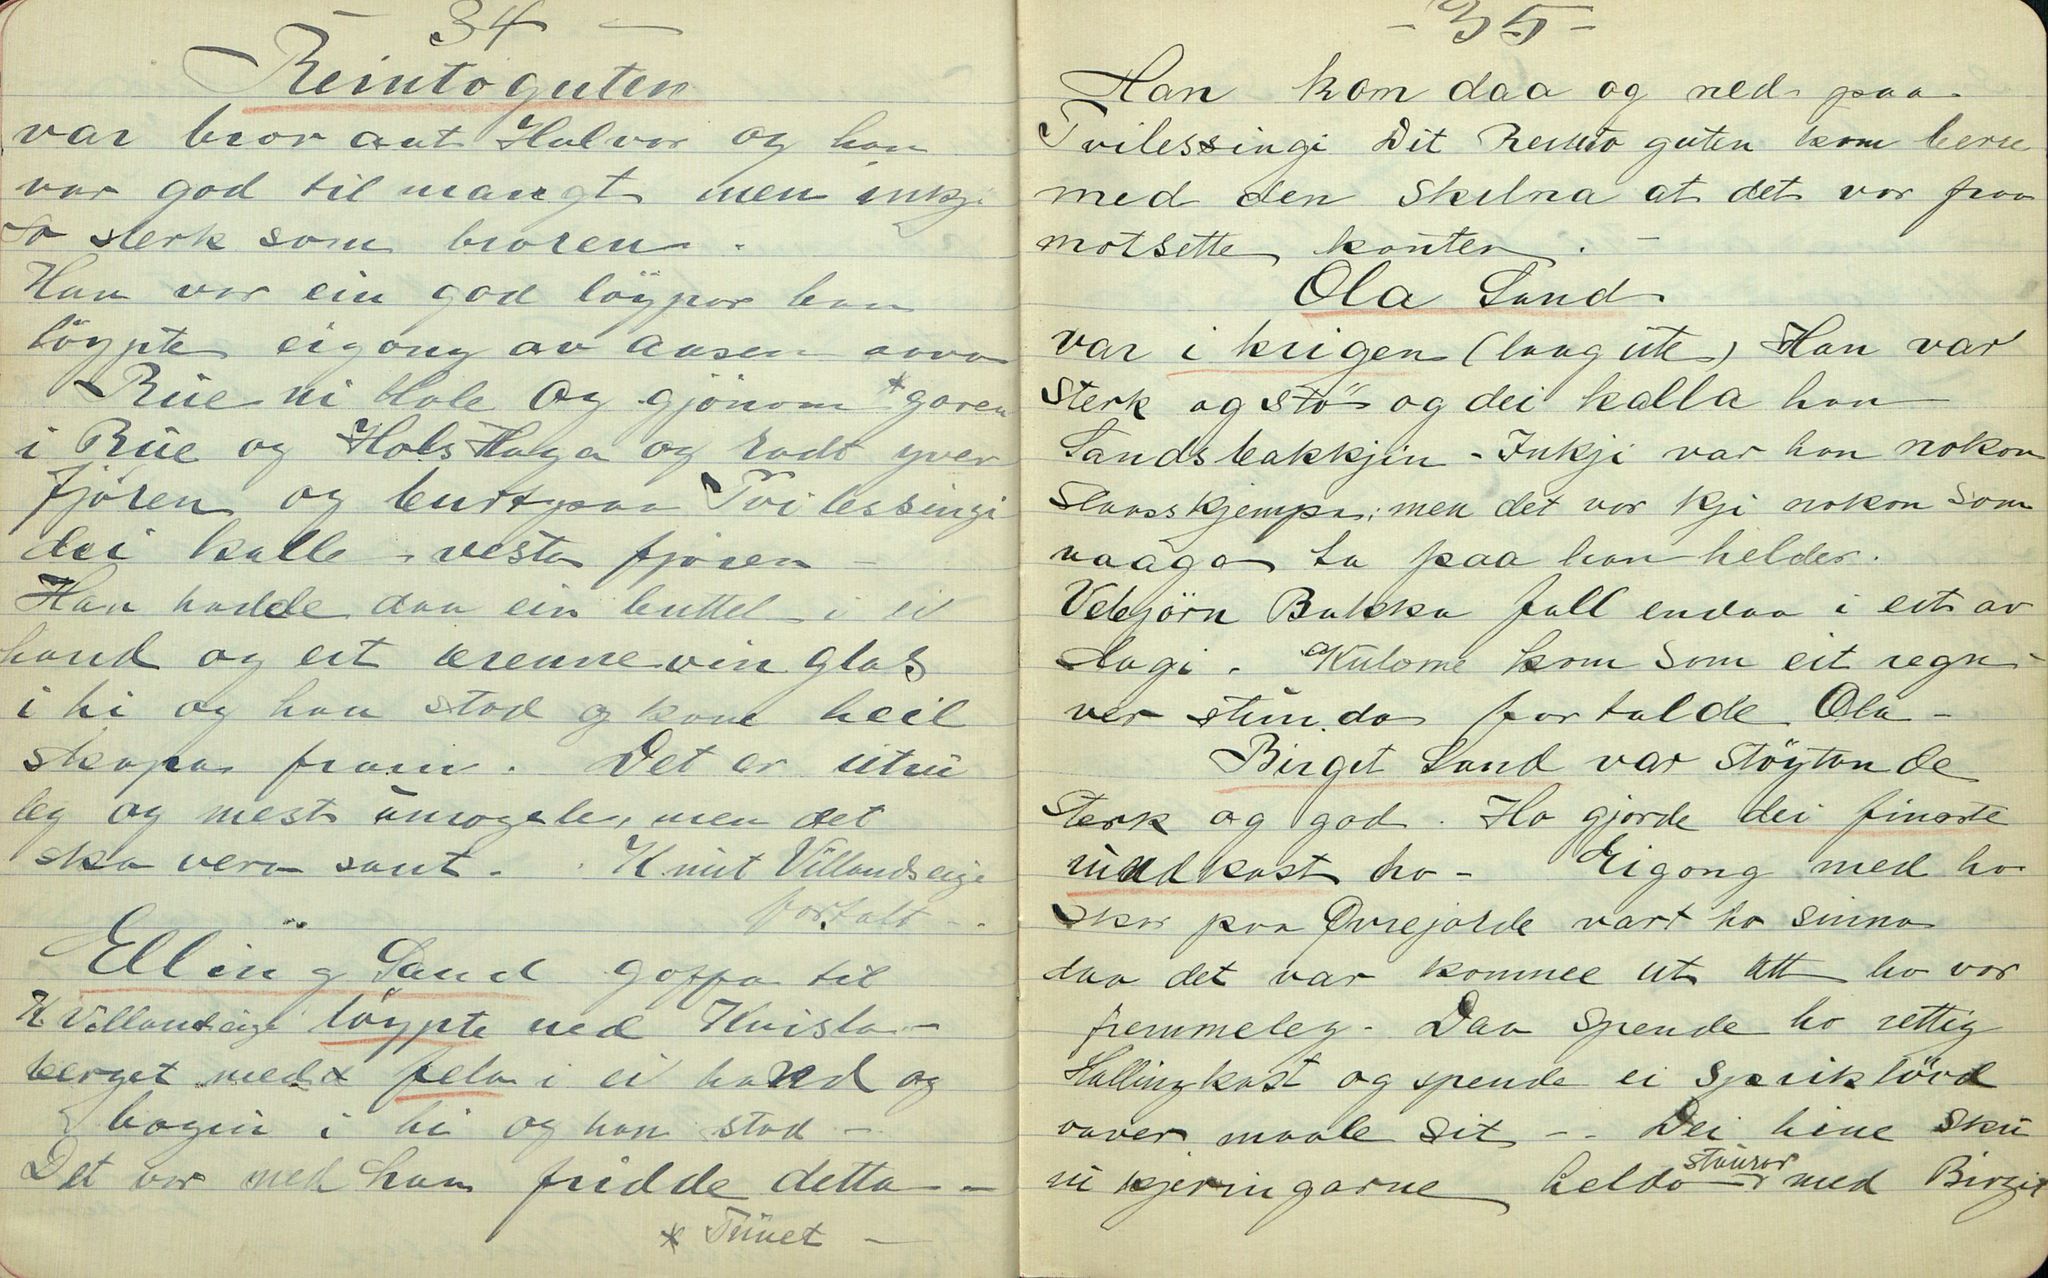 34 -
Reintoguten
var bror aat Halvor og han
var god til mangt men inkji
so sterk som broren.
Han var ein god löypar han
löypte eigong av aasen ovva
Rue ni Hole og gjönom *garen
i Rue og Hols Haga og radt yver
fjören og burtpaa Tvilessingi
dei kalle vesta fjören -
Han hadde daa ein buttel i ei
hand og eit brennevin glas
i hi og han stod og kom heil
skapa fram. Det er utru
leg og mest umogele, men det
ska vera sant. Knut Villandseige
fortalt -
Elling Sand goffa til
K Villandseige löypte ned Kvisla-
berget med fela i ei hand og
bogin i hi og han stod -
Det var med han fridde detta -
* Tunet -
- 35 -
Han kom daa og ned paa
Tvilessingi Dit Reinto guten kom berre
med den skilna at det var fraa
motsette kanten. -
Ola Sand
var i krigen (laag ute) Han var
sterk og stö og dei kalla han
Sandsbakkjin - Inkji var han nokon
slaasskjempe; men det var kji nokon som
vaaga ta paa han helder.
Vebjörn Bakka fall endaa i eit av
slagi. Kulome kom som eit regn-
ver stundo fortalde Ola -
Birget Sand var stöytande
sterk og god. Ho gjorde dei finaste
undkast ho - Eigong med ho
skar paa Øvrejorde vart ho sinna
daa det var kommee ut att ho var
fremmeleg - Daa spende ho rettig
Hallingkast og spende ei spriklörd
over maale sit - Dei hine sku
ni kjeringarne heldo staurar med Birgit